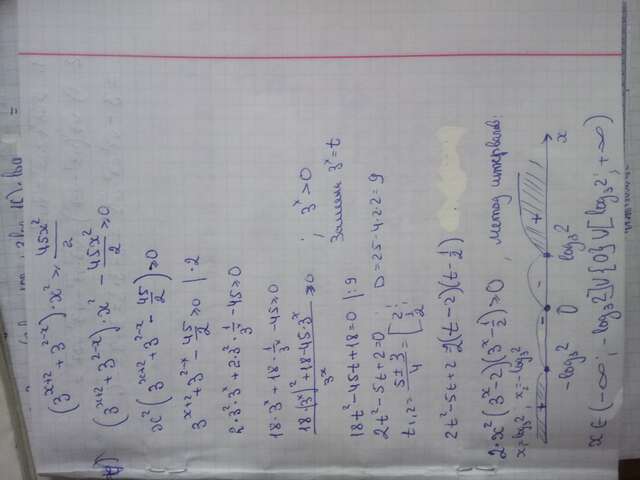 (3^{x+2} + 3^{2-x}) · x² ≥ 45x²/2
А) (3^{x+2} + 3^{2-x}) · x² - 45x²/2 ≥ 0
x² (3^{x+2} + 3^{2-x} - 45/2) ≥ 0
3^{x+2} + 3^{2-x} - 45/2 ≥ 0 | · 2
2·3²·3^x + 2·3²·1/3^x - 45 ≥ 0
18·3^x + 18·1/3^x - 45 ≥ 0
(18·(3^x)² + 18 - 45·3^x)/3^x ≥ 0 ; 3^x > 0
Замена 3^x = t
18t² - 45t + 18 = 0 | : 9
2t² - 5t + 2 = 0 ; D = 25 - 4·2·2 = 9
t_{1,2} = (5 ± 3)/4 = [2; 1/2
2t² - 5t + 2 = 2(t - 2)(t - 1/2)
2·x² (3^x - 2)(3^x - 1/2) ≥ 0 , метод интервалов:
x = log₃2 , x = -log₃2
+ - - +
-log₃2 0 log₃2 x
x ∈ (-∞; -log₃2] ∪ {0} ∪ [log₃2; +∞)